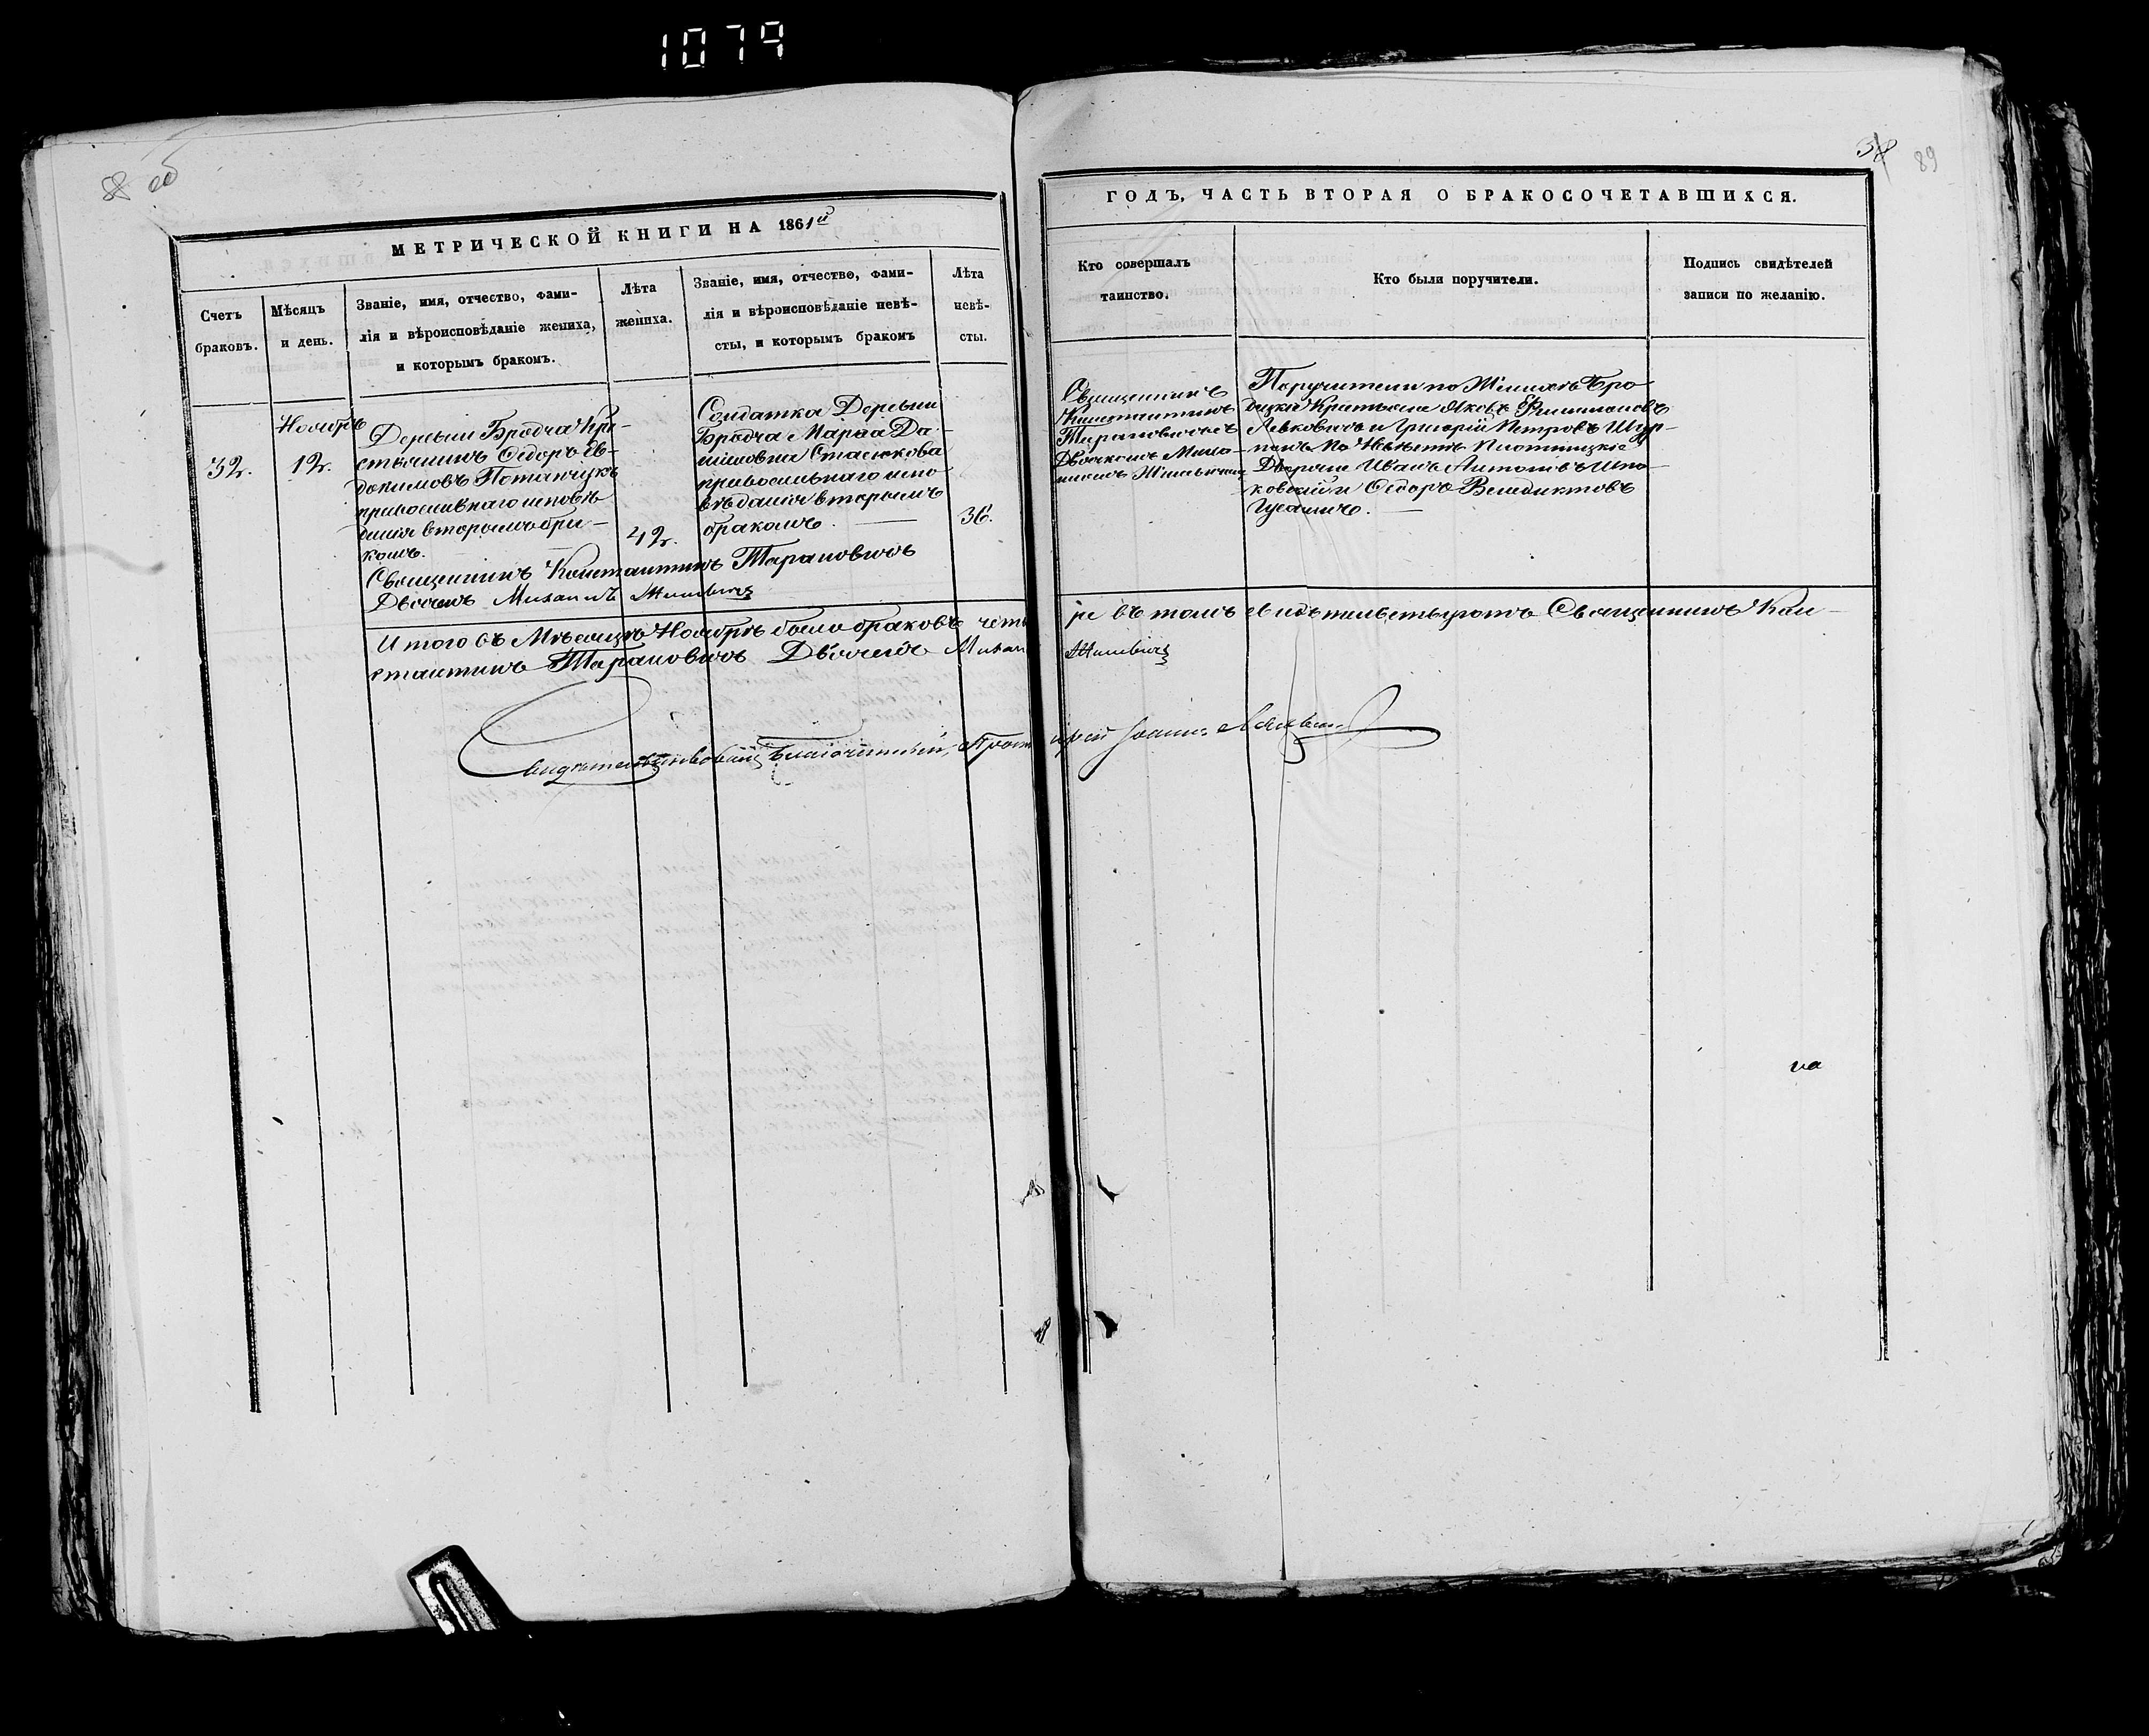 1079
58 об
МЕТРИЧЕСКОЙ КНИГИ НА 1861й
Счетъ
браковъ.
Мѣсяцъ
и день.
Званіе, имя, отчество, фами-
лія и вѣроисповѣданіе жениха,
и которымъ бракомъ.
Лѣта
жениха.
Званіе, имя, отчество, фами-
лія и вѣроисповѣданіе невѣ-
сты, и которымъ бракомъ
Лѣта
невѣ-
сты.
32.
Ноябрь
12.
Деревни Бродча Кре-
стьянинъ Ѳедоръ Ев-
докимовъ Потапчукъ
православнаго исповѣ
данія вторымъ бра-
комъ.
42.
Солдатка Деревни
Бродча Марѳа Да-
ниловна Стасюкова
православнаго испо-
вѣданія вторымъ
бракомъ.
36.
Священникъ Константинъ Тарановичъ
Дьячекъ Михаилъ Жилевичъ
Итого въ Мѣсяцѣ Ноябрѣ было браковъ четы
стантинъ Тарановичъ Дьячекъ Михаи
Свидѣтельствовалъ Благочинный, Прот
89
ГОДЪ, ЧАСТЬ ВТОРАЯ О БРАКОСОЧЕТАВШИХСЯ.
Кто совершалъ
таинство.
Кто были поручители.
Подпись свидѣтелей
записи по желанію.
Священникъ
Константинъ
Тарановичъ съ
Дьячкомъ Миха-
иломъ Жилевичемъ
Поручители по Женихѣ Бро
децкіе Крестьяне Яковъ Филимоновъ
Левковичъ и Григорій Петровъ Шур-
По Невѣстѣ Плотницкіе
Дворяне Иванъ Антоновъ Шпа-
ковскій и Ѳедоръ Венедиктовъ
Гусаимъ.
ре въ томъ свидѣтельствуютъ Священникъ Кон-
Жилевичъ
іерей Іоаннъ
на